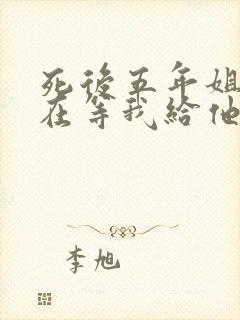 死後五年姐
在等我給他
李旭